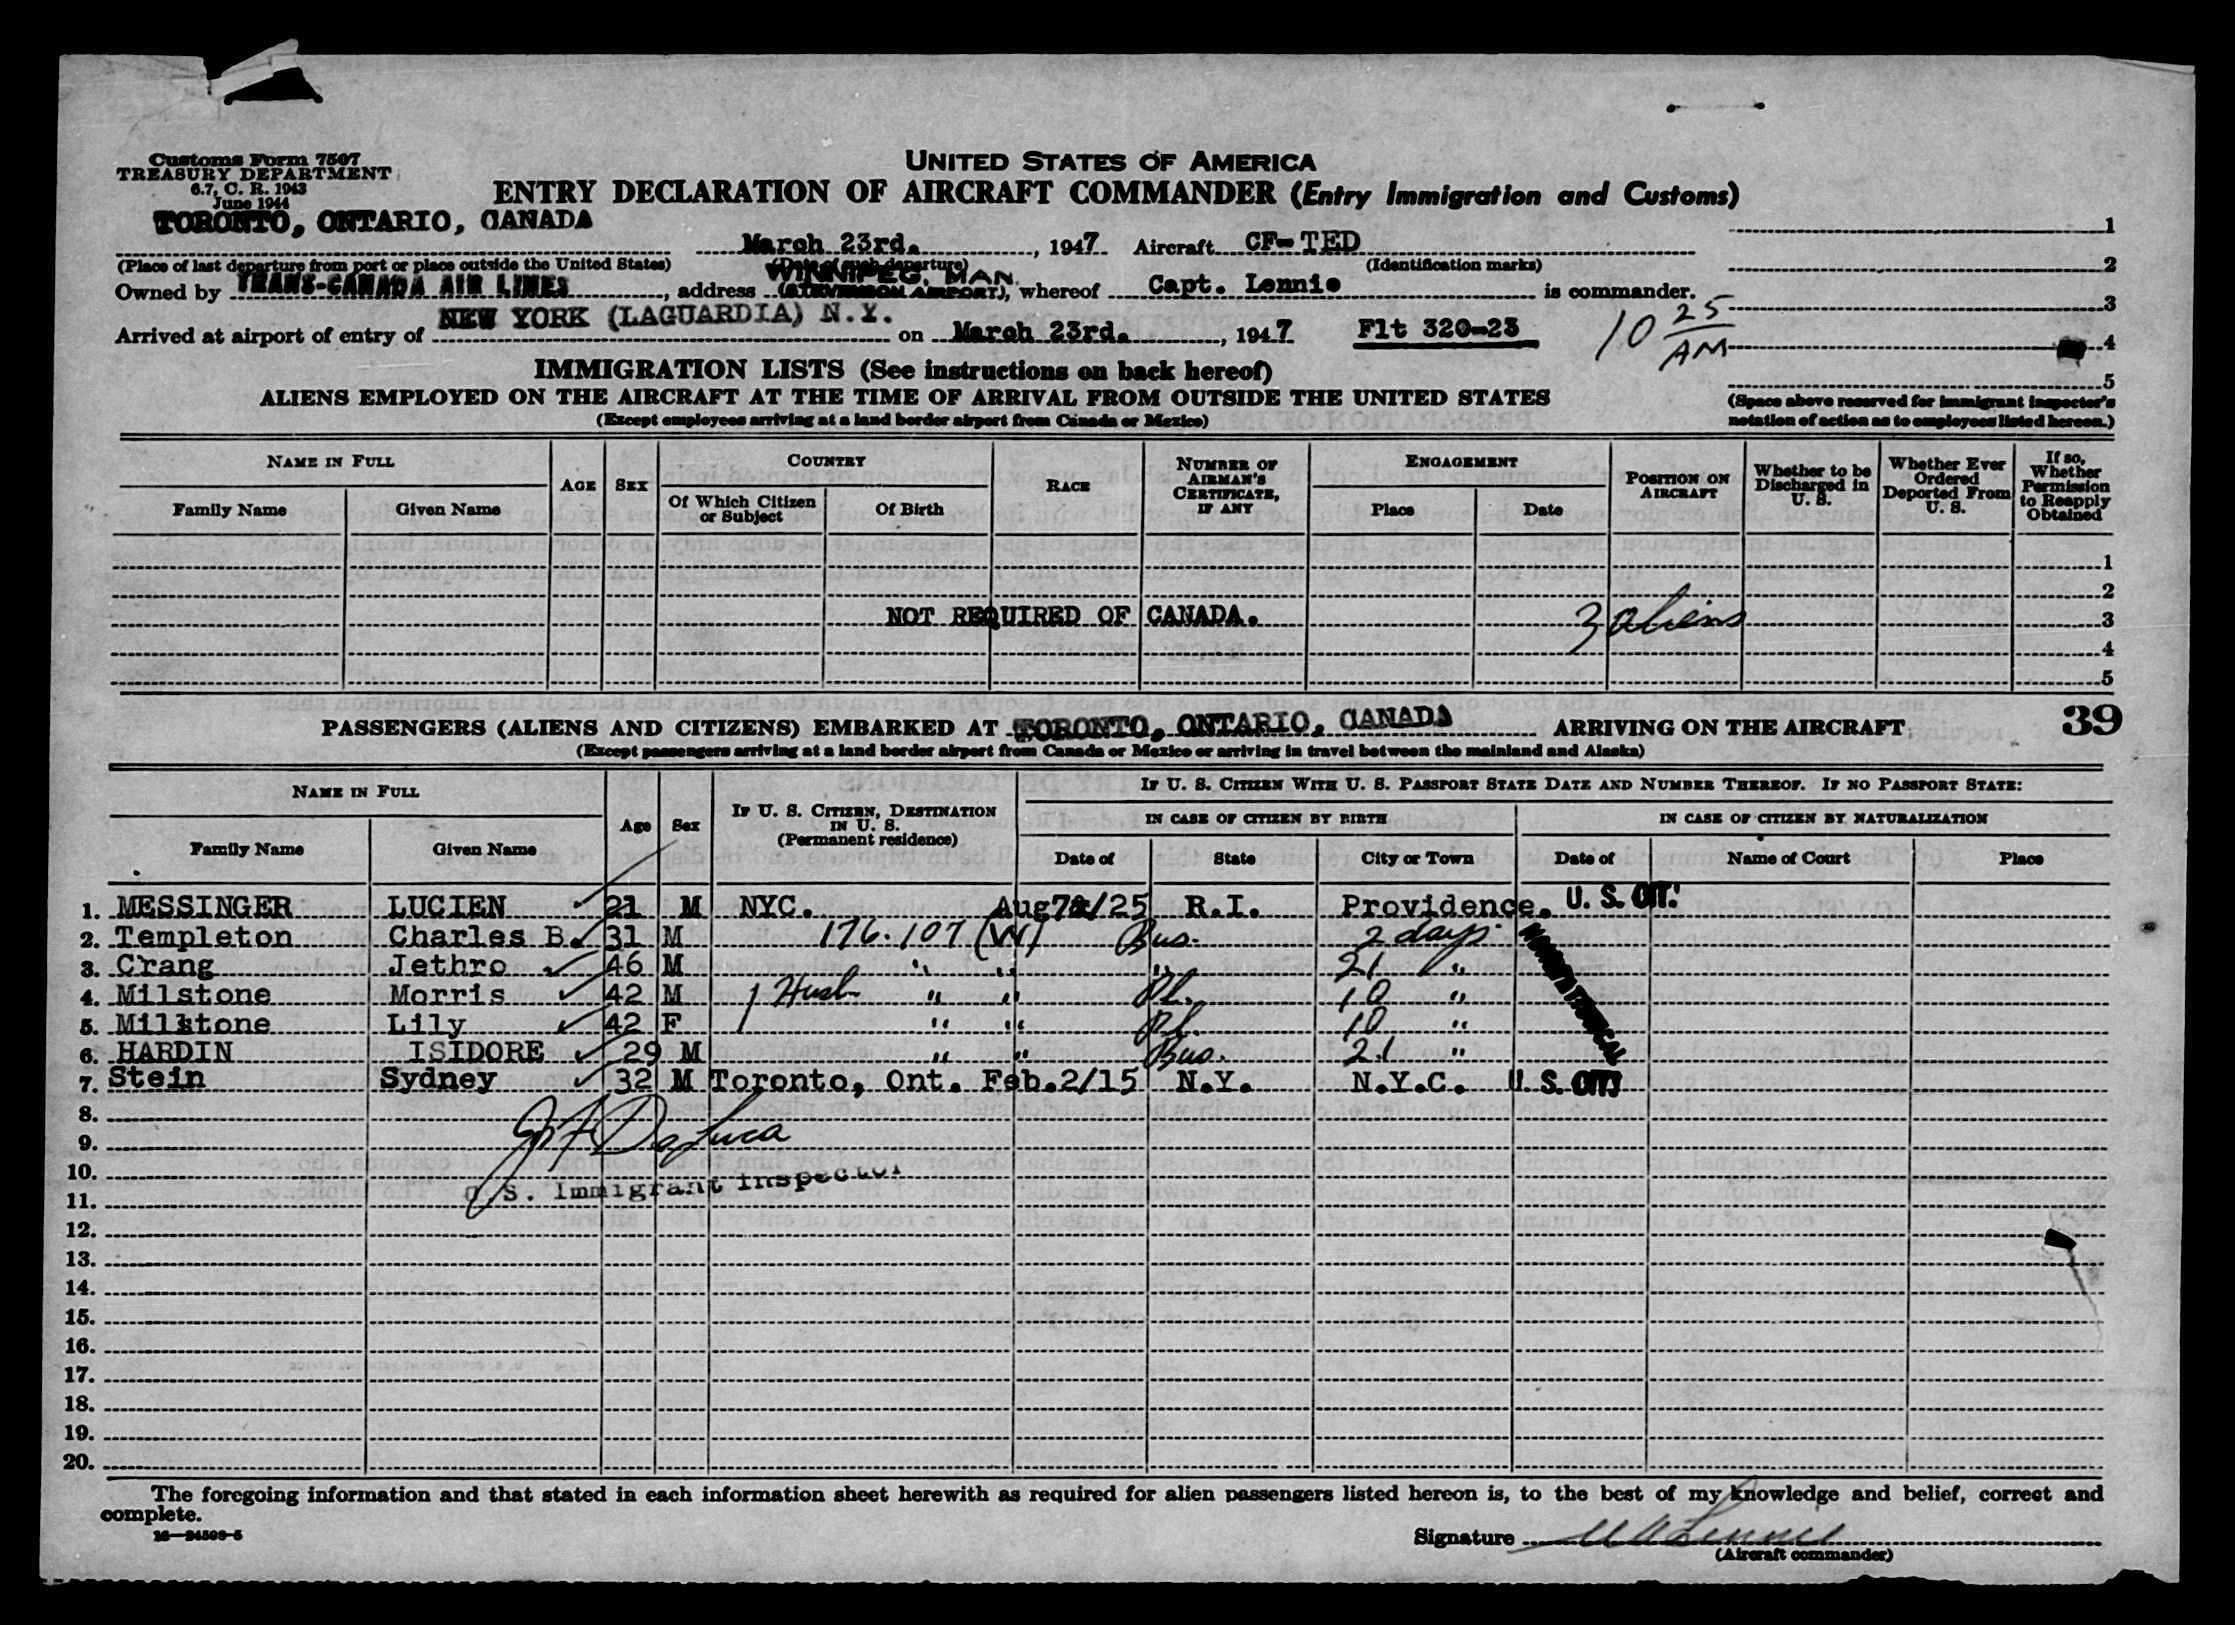 Customs Form 7507
TREASURY DEPARTMENT
6.7, C. R. 1943
June 1944
UNITED STATES OF AMERICA
ENTRY DECLARATION OF AIRCRAFT COMMANDER (Entry Immigration and Customs)
TORONTO, ONTARIO, CANADA
March 23rd. , 1947 Aircraft CF-TED
1
(Place of last departure from port or place outside the United States) (Date of such departure) (Identification marks)
2
WINNIPEG, MAN
Owned by TRANS-CANADA AIR LINES , address (STEVENSON AIRPORT), whereof Capt. Lennie is commander.
3
Arrived at airport of entry of NEW YORK (LAGUARDIA) N.Y. on March 23rd. , 1947 Flt 320-23 10 25 AM
4
5
IMMIGRATION LISTS (See instructions on back hereof)
ALIENS EMPLOYED ON THE AIRCRAFT AT THE TIME OF ARRIVAL FROM OUTSIDE THE UNITED STATES
(Except employees arriving at a land border airport from Canada or Mexico)
(Space above reserved for immigrant inspector's
notation of action as to employees listed hereon.)
NAME IN FULL
Family Name Given Name
AGE SEX
COUNTRY
Of Which Citizen or Subject Of Birth
RACE
NUMBER OF AIRMAN'S CERTIFICATE, IF ANY
ENGAGEMENT
Place Date
POSITION ON AIRCRAFT
Whether to be Discharged in U. S.
Whether Ever Ordered Deported From U. S.
If so, Whether Permission to Reapply Obtained
1
2
NOT REQUIRED OF CANADA. 3 aliens 3
4
5
PASSENGERS (ALIENS AND CITIZENS) EMBARKED AT TORONTO, ONTARIO, CANADA ARRIVING ON THE AIRCRAFT 39
(Except passengers arriving at a land border airport from Canada or Mexico or arriving in travel between the mainland and Alaska)
NAME IN FULL
Family Name Given Name
Age Sex
IF U. S. CITIZEN, DESTINATION IN U. S. (Permanent residence)
IF U. S. CITIZEN WITH U. S. PASSPORT STATE DATE AND NUMBER THEREOF. IF NO PASSPORT STATE:
IN CASE OF CITIZEN BY BIRTH
Date of State City or Town
IN CASE OF CITIZEN BY NATURALIZATION
Date of Name of Court Place
1. MESSINGER LUCIEN 21 M NYC. Aug /25 R.I. Providence. U. S. CIT.
2. Templeton Charles B. 31 M 176.107 (W) Bus. 2 days
3. Crang Jethro 46 M " " " 21 "
4. Milstone Morris 42 M Husb " " Pl. 10 "
5. Milstone Lily 42 F " " Pl. 10 "
6. HARDIN ISIDORE 29 M " " Bus. 21 "
7. Stein Sydney 32 M Toronto, Ont. Feb.2/15 N.Y. N.Y.C. U. S. CIT.
8.
9.
10.
U.S. Immigrant Inspector
11.
12.
13.
14.
15.
16.
17.
18.
19.
20.
The foregoing information and that stated in each information sheet herewith as required for alien passengers listed hereon is, to the best of my knowledge and belief, correct and
complete.
16—24508-5
Signature
(Aircraft commander)